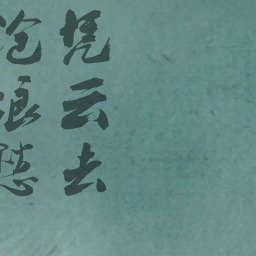 凭云去
沧浪